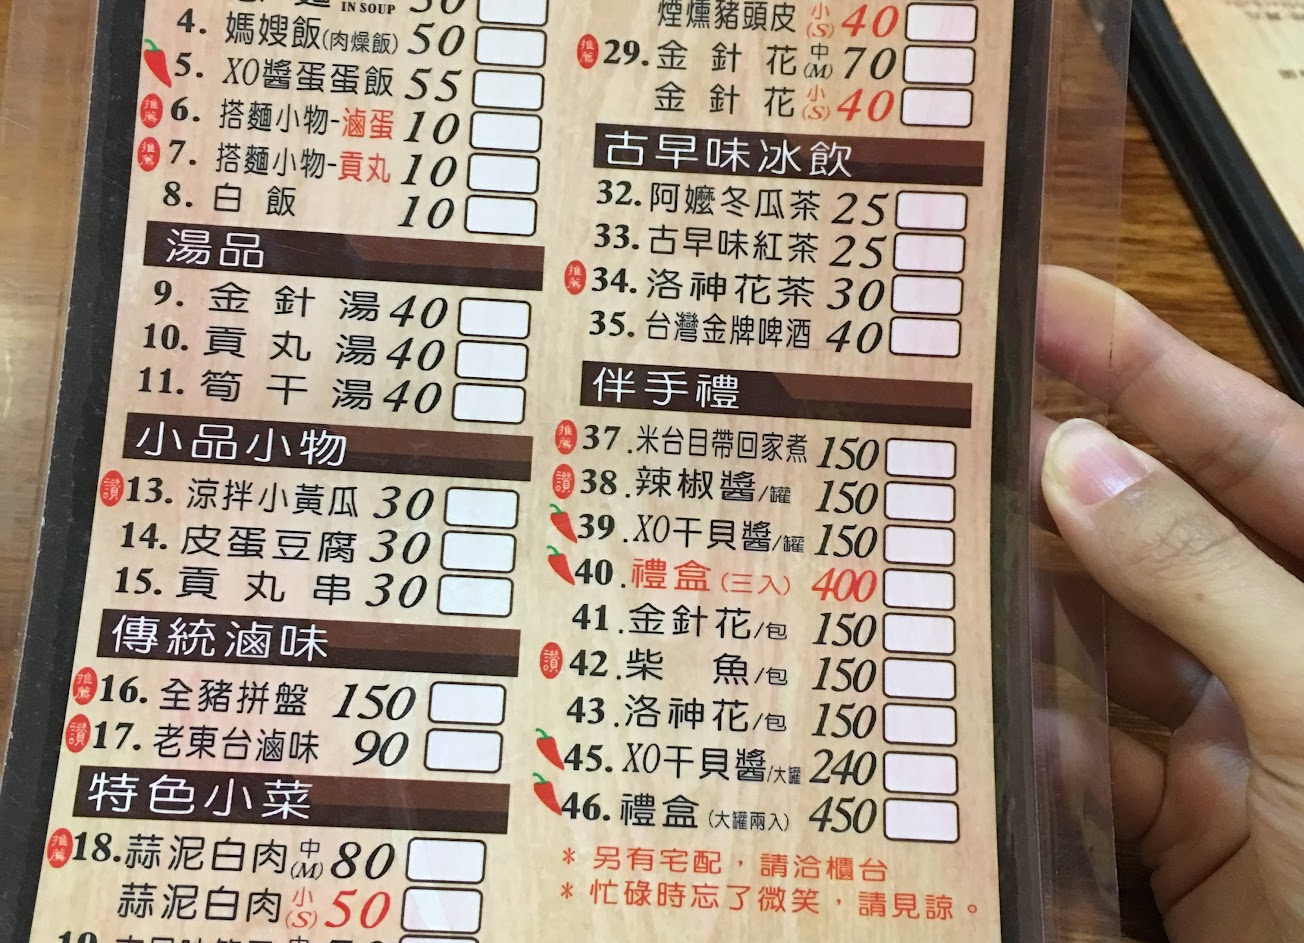 IN SOUP
4. 媽嫂飯(肉燥飯) 50
5. XO醬蛋蛋飯 55
推薦 6. 搭麵小物-滷蛋 10
推薦 7. 搭麵小物-貢丸 10
8. 白飯 10
湯品
9. 金針湯 40
10. 貢丸湯 40
11. 筍干湯 40
小品小物
讚 13. 涼拌小黃瓜 30
14. 皮蛋豆腐 30
15. 貢丸串 30
傳統滷味
推薦 16. 全豬拼盤 150
讚 17. 老東台滷味 90
特色小菜
推薦 18. 蒜泥白肉 中(M) 80
蒜泥白肉 小(S) 50
煙燻豬頭皮 小(S) 40
推薦 29. 金針花 中(M) 70
金針花 小(S) 40
古早味冰飲
32. 阿嬤冬瓜茶 25
33. 古早味紅茶 25
推薦 34. 洛神花茶 30
35. 台灣金牌啤酒 40
伴手禮
推薦 37. 米台目帶回家煮 150
讚 38. 辣椒醬/罐 150
39. XO干貝醬/罐 150
40. 禮盒(三入) 400
41. 金針花/包 150
讚 42. 柴魚/包 150
43. 洛神花/包 150
45. XO干貝醬/大罐 240
46. 禮盒(大罐兩入) 450
* 另有宅配，請洽櫃台
* 忙碌時忘了微笑，請見諒。